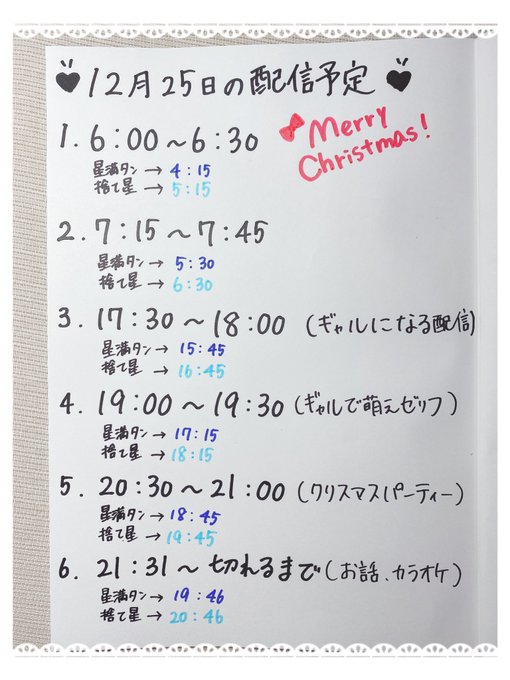 ♥12月25日の配信予定♥
Merry
Christmas!
1. 6:00〜6:30
星満タン→4:15
捨て星→5:15
2. 7:15〜7:45
星満タン→5:30
捨て星→6:30
3. 17:30〜18:00 (ギャルになる配信)
星満タン→15:45
捨て星→16:45
4. 19:00〜19:30 (ギャルで萌えゼリフ)
星満タン→17:15
捨て星→18:15
5. 20:30〜21:00 (クリスマスパーティー)
星満タン→18:45
捨て星→19:45
6. 21:31〜切れるまで(お話、カラオケ)
星満タン→19:46
捨て星→20:46